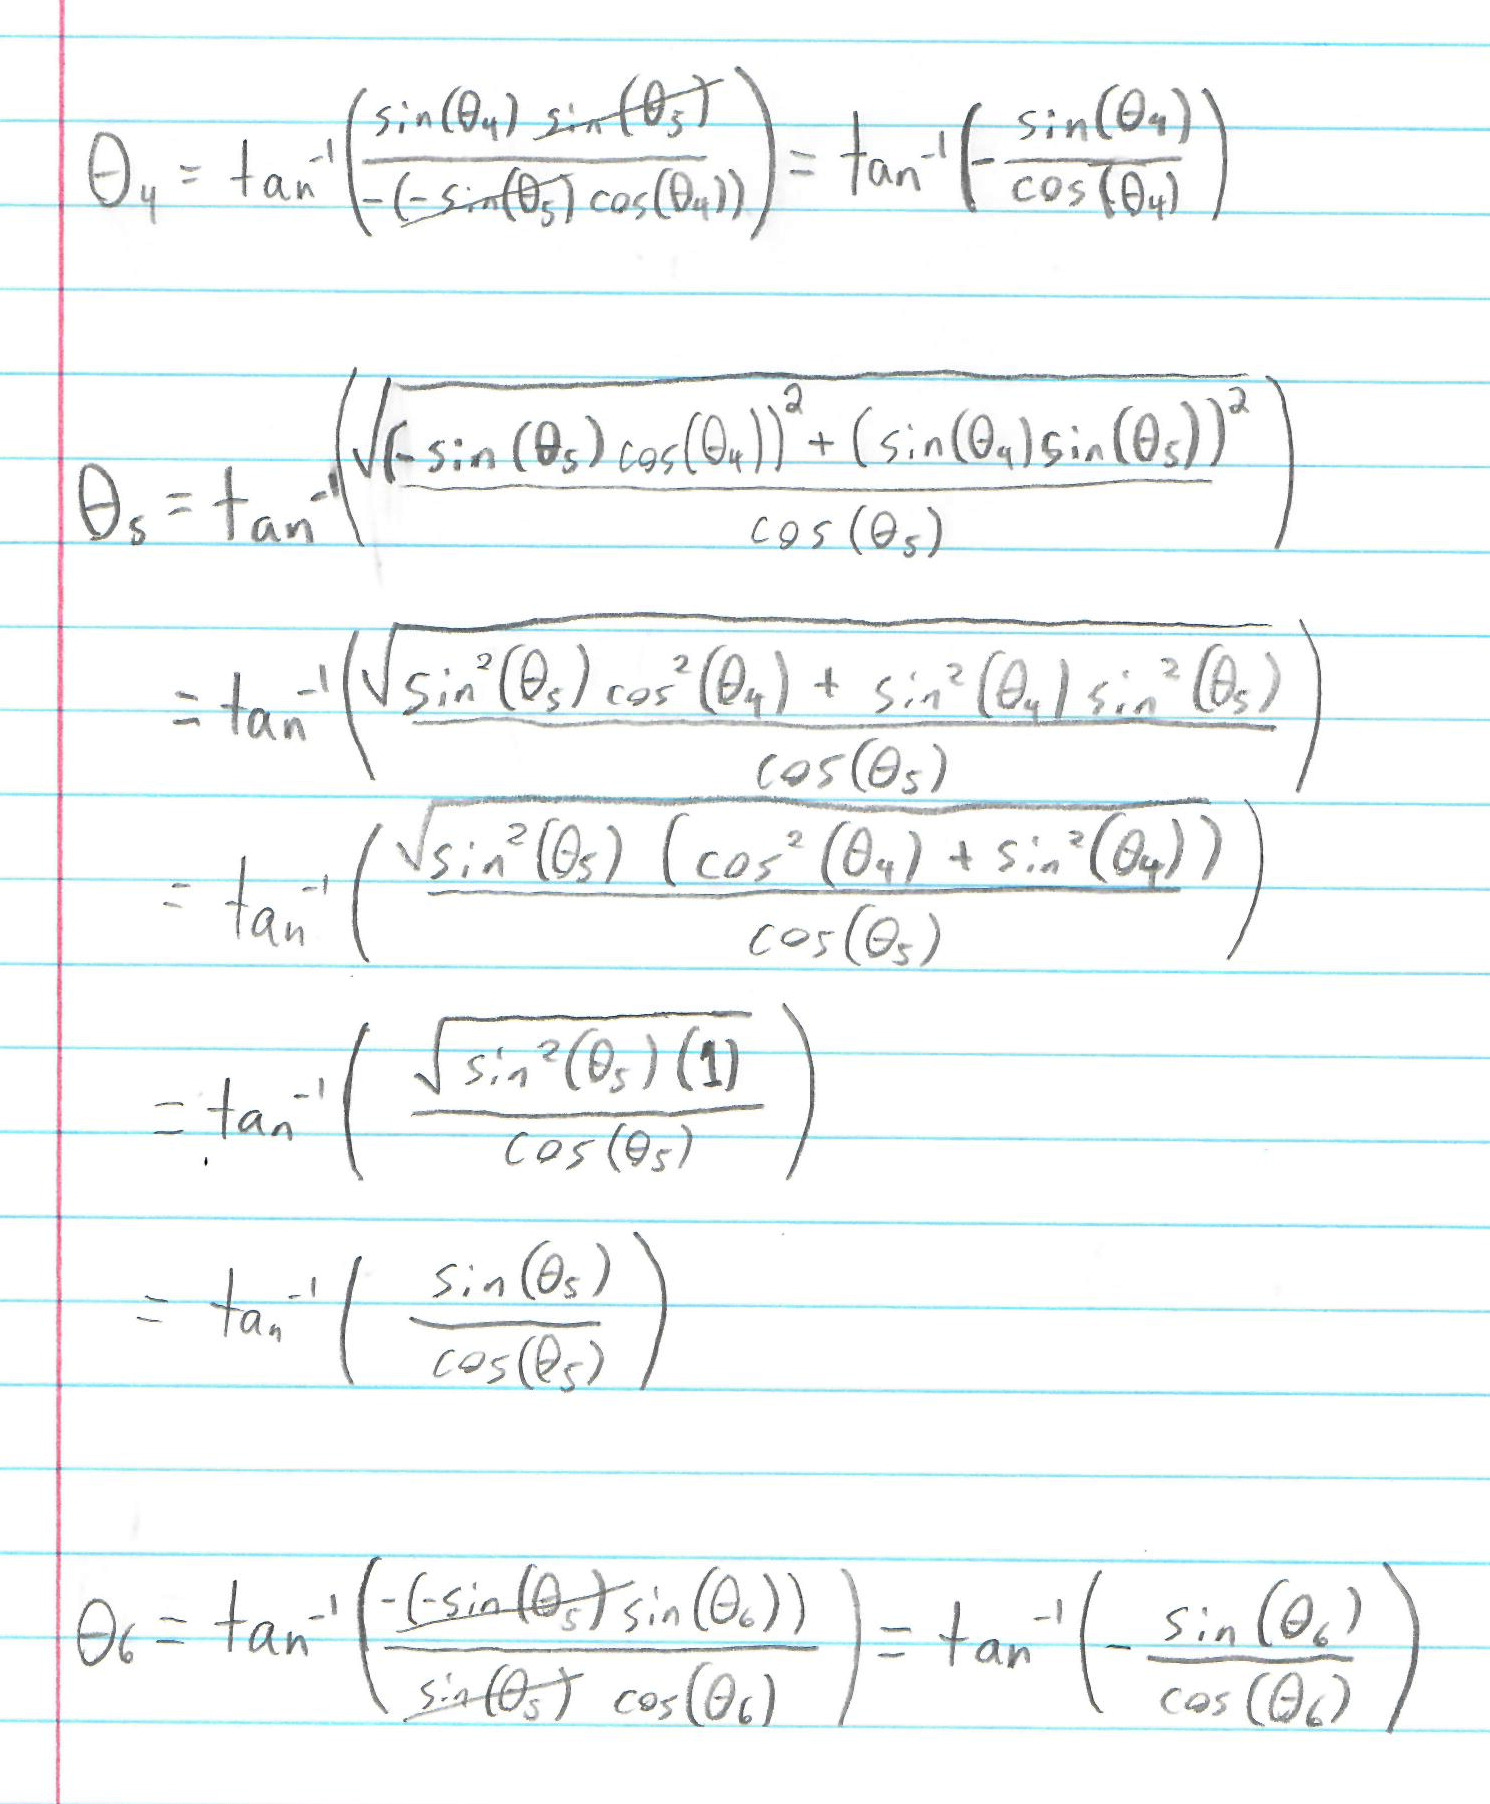 θ₄ = tan⁻¹(sin(θ₄) sin(θ₅) / -(-sin(θ₅) cos(θ₄))) = tan⁻¹(- sin(θ₄) / cos(θ₄))
θ₅ = tan⁻¹(√((-sin(θ₅) cos(θ₄))² + (sin(θ₄) sin(θ₅))²) / cos(θ₅))
= tan⁻¹(√(sin²(θ₅) cos²(θ₄) + sin²(θ₄) sin²(θ₅)) / cos(θ₅))
= tan⁻¹(√(sin²(θ₅) (cos²(θ₄) + sin²(θ₄))) / cos(θ₅))
= tan⁻¹(√(sin²(θ₅) (1)) / cos(θ₅))
= tan⁻¹(sin(θ₅) / cos(θ₅))
θ₆ = tan⁻¹(-(-sin(θ₅) sin(θ₆)) / sin(θ₅) cos(θ₆)) = tan⁻¹(- sin(θ₆) / cos(θ₆))